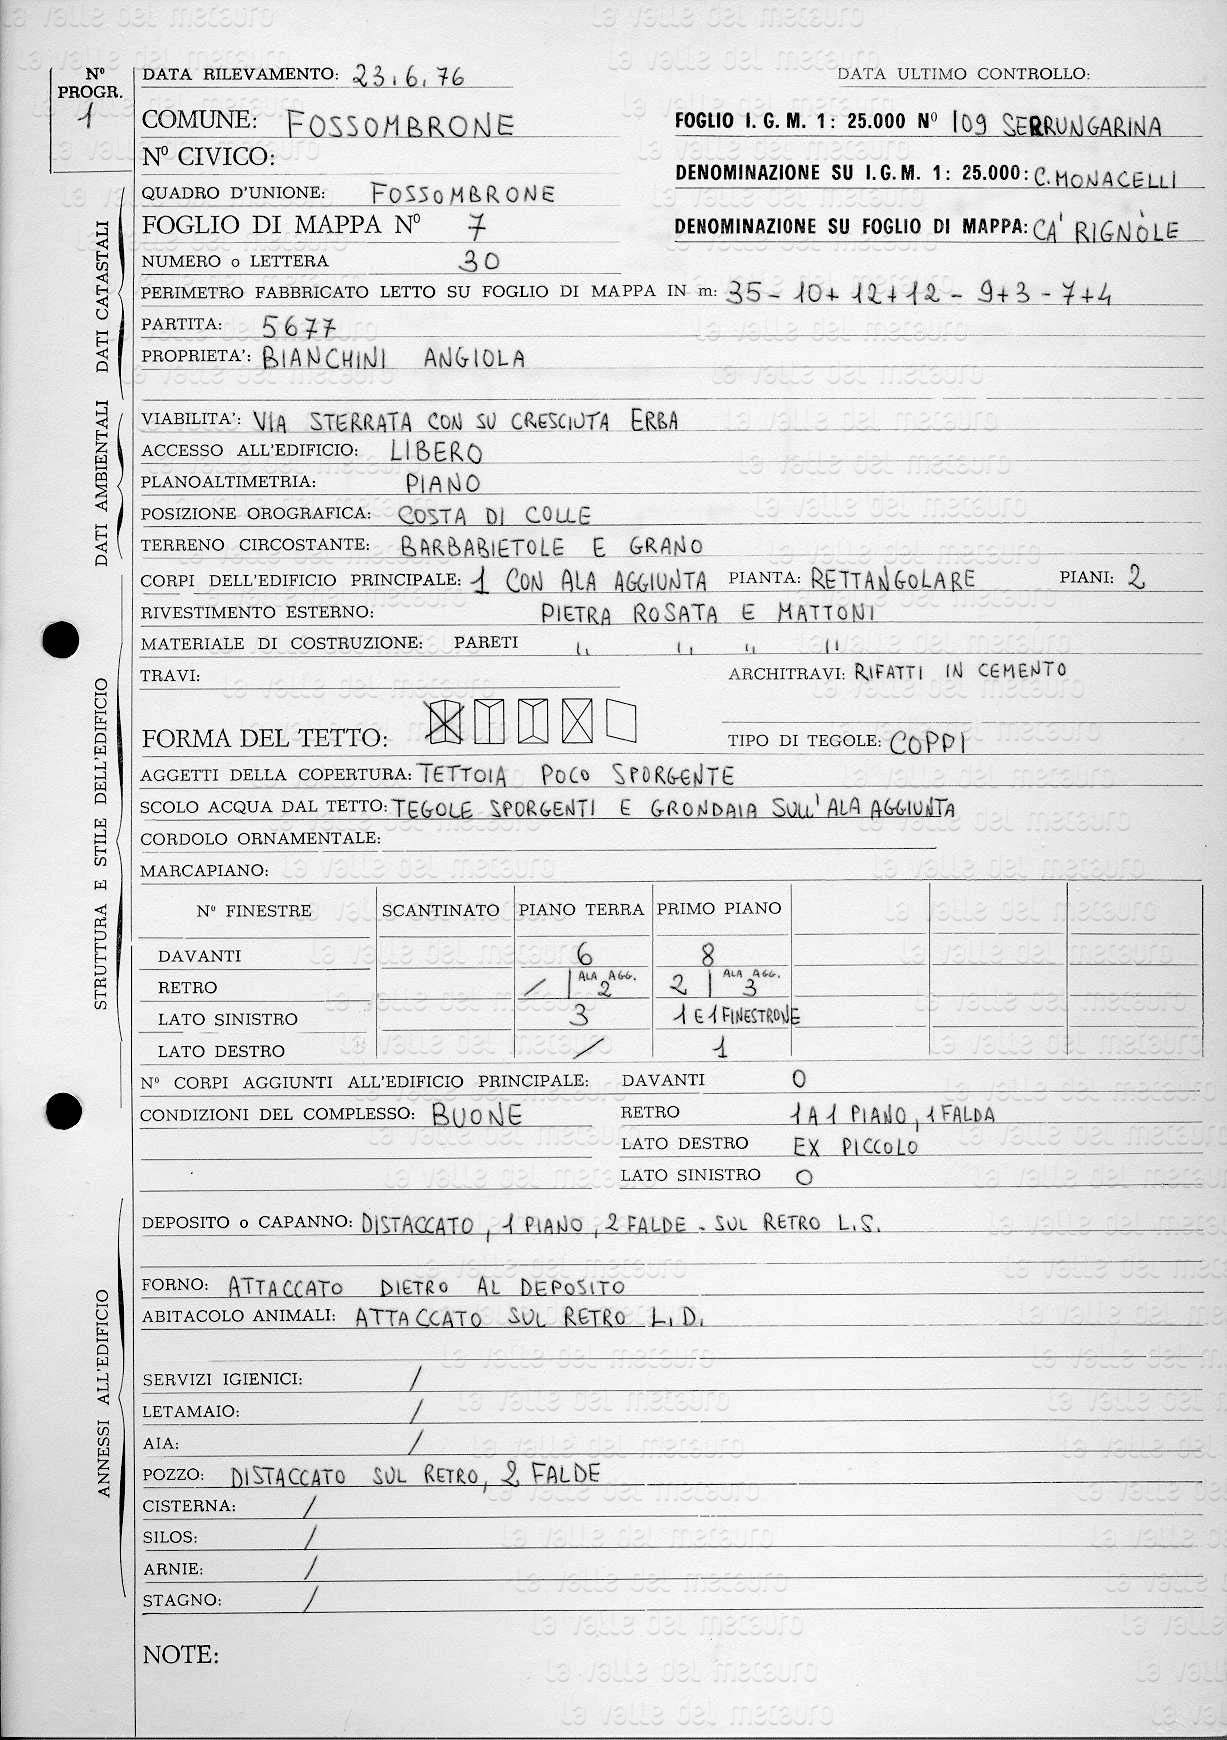 Nº PROGR. 1
DATA RILEVAMENTO: 23.6.76 DATA ULTIMO CONTROLLO:
COMUNE: FOSSOMBRONE FOGLIO I. G. M. 1: 25.000 Nº 109 SERRUNGARINA
Nº CIVICO: DENOMINAZIONE SU I.G.M. 1: 25.000: C. MONACELLI
DATI CATASTALI
QUADRO D'UNIONE: FOSSOMBRONE
FOGLIO DI MAPPA Nº 7 DENOMINAZIONE SU FOGLIO DI MAPPA: CA' RIGNÒLE
NUMERO o LETTERA 30
PERIMETRO FABBRICATO LETTO SU FOGLIO DI MAPPA IN m: 35 - 10 + 12 + 12 - 9 + 3 - 7 + 4
PARTITA: 5677
PROPRIETA': BIANCHINI ANGIOLA
DATI AMBIENTALI
VIABILITA': VIA STERRATA CON SU CRESCIUTA ERBA
ACCESSO ALL'EDIFICIO: LIBERO
PLANOALTIMETRIA: PIANO
POSIZIONE OROGRAFICA: COSTA DI COLLE
TERRENO CIRCOSTANTE: BARBABIETOLE E GRANO
STRUTTURA E STILE DELL'EDIFICIO
CORPI DELL'EDIFICIO PRINCIPALE: 1 CON ALA AGGIUNTA PIANTA: RETTANGOLARE PIANI: 2
RIVESTIMENTO ESTERNO: PIETRA ROSATA E MATTONI
MATERIALE DI COSTRUZIONE: PARETI " " " "
TRAVI: ARCHITRAVI: RIFATTI IN CEMENTO
FORMA DEL TETTO: TIPO DI TEGOLE: COPPI
AGGETTI DELLA COPERTURA: TETTOIA POCO SPORGENTE
SCOLO ACQUA DAL TETTO: TEGOLE SPORGENTI E GRONDAIA SULL'ALA AGGIUNTA
CORDOLO ORNAMENTALE:
MARCAPIANO:
Nº FINESTRE SCANTINATO PIANO TERRA PRIMO PIANO
DAVANTI 6 8
RETRO / | ALA AGG. 2 2 | ALA AGG. 3
LATO SINISTRO 3 1 E 1 FINESTRONE
LATO DESTRO / 1
Nº CORPI AGGIUNTI ALL'EDIFICIO PRINCIPALE: DAVANTI 0
CONDIZIONI DEL COMPLESSO: BUONE RETRO 1 A 1 PIANO, 1 FALDA
LATO DESTRO EX PICCOLO
LATO SINISTRO 0
ANNESSI ALL'EDIFICIO
DEPOSITO o CAPANNO: DISTACCATO, 1 PIANO, 2 FALDE. SUL RETRO L.S.
FORNO: ATTACCATO DIETRO AL DEPOSITO
ABITACOLO ANIMALI: ATTACCATO SUL RETRO L.D.
SERVIZI IGIENICI: /
LETAMAIO: /
AIA: /
POZZO: DISTACCATO SUL RETRO, 2 FALDE
CISTERNA: /
SILOS: /
ARNIE: /
STAGNO: /
NOTE:
la valle del metauro